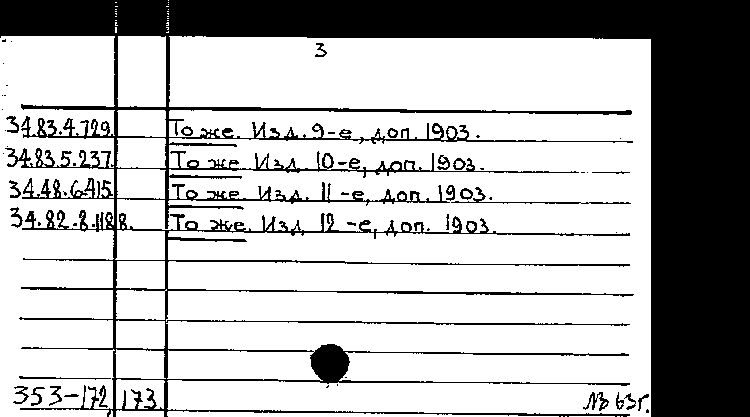 3
34.83.4.729. То же. Изд. 9-е, доп. 1903.
34.83.5.237. То же. Изд. 10-е, доп. 1903.
34.48.6.415. То же. Изд. 11-е, доп. 1903.
34.82.8.1188. То же. Изд. 12-е, доп. 1903.
353-172, 173 63г.